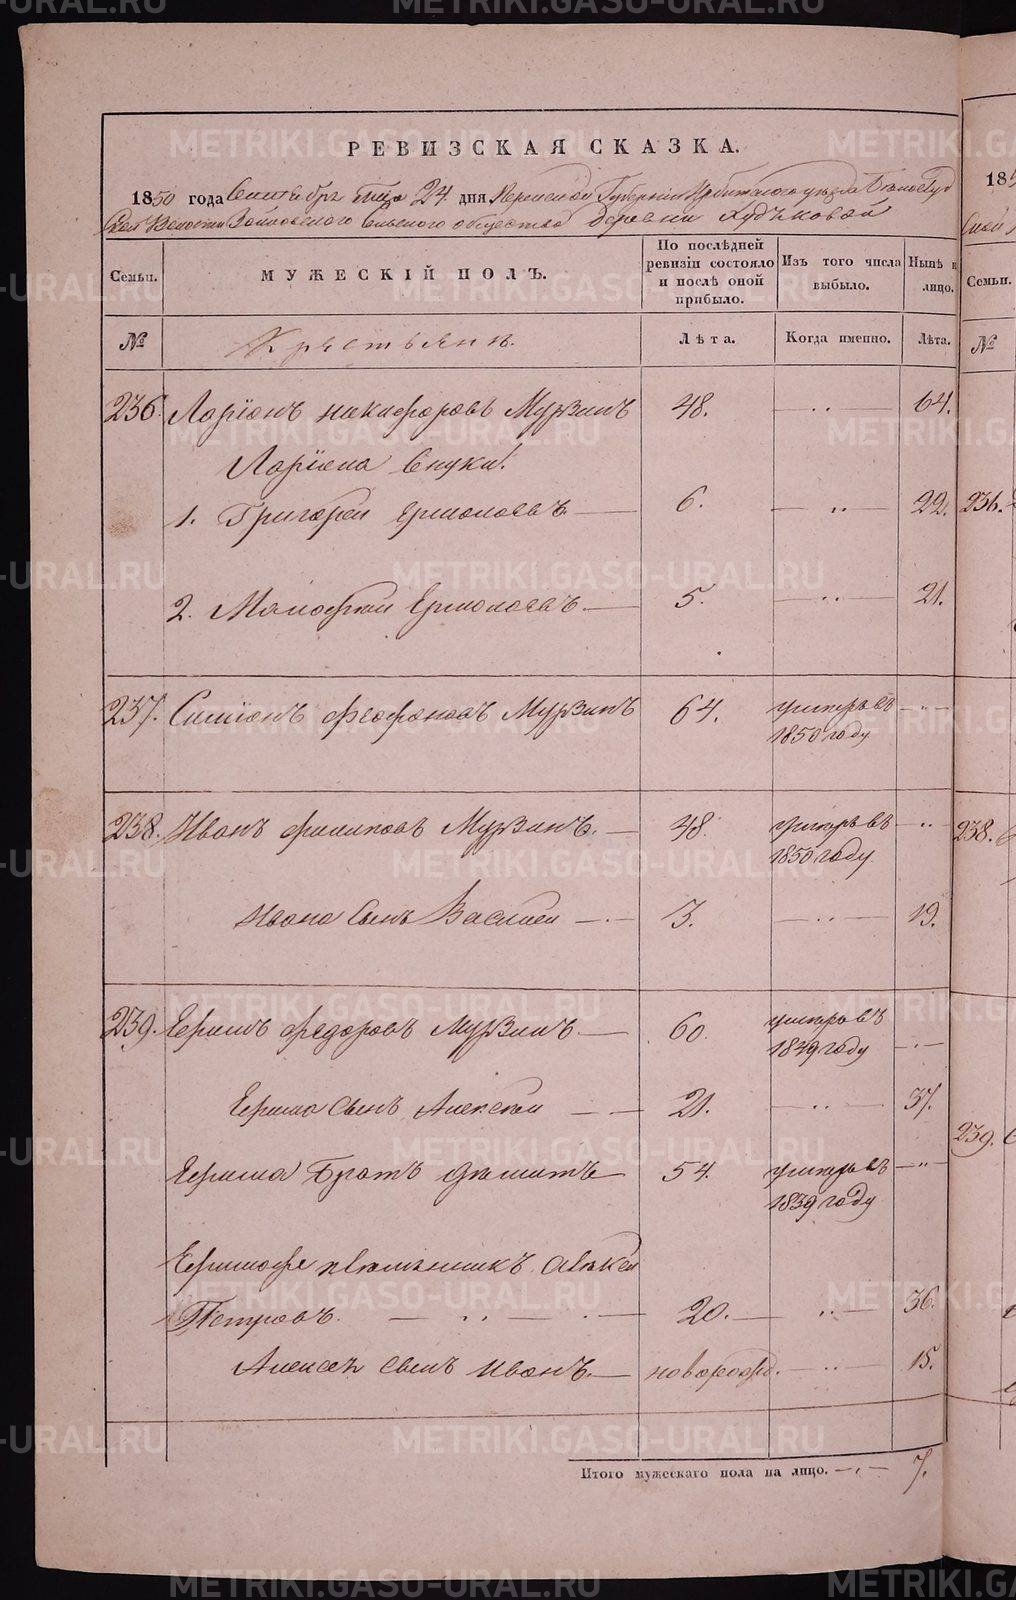 РЕВИЗСКАЯ СКАЗКА.
1850 года Сентября м͠ца 24 дня Пермской Губернии Ирбитского уезда Белослуд
ской Волости сельского общества деревни Худяковой
Семьи.
МУЖЕСКІЙ ПОЛЪ.
По послѣдней ревизіи состояло и послѣ оной прибыло.
Изъ того числа выбыло.
Нынѣ на лицо.
№
Крестьянъ.
Лѣта.
Когда именно.
Лѣта.
236. Ларіонъ Никифоровъ Мурзинъ 48. — „ — 64.
Ларіона внуки:
1. Григорей Ермолаевъ — 6. — „ — 22.
2. Ермолаевъ — 5. — „ — 21.
237. Симіонъ Феофановъ Мурзинъ 64. умеръ въ — „ —
1850 году
238. Иванъ Филиповъ Мурзинъ. — 48. умеръ въ — „ —
1850 году.
Ивана сынъ Василей — 3. — „ — 19.
239. Ефимъ Федоровъ Мурзинъ — 60. умеръ въ
1849 году — „ —
Ефима сынъ Алексей — 21. — „ — 37.
Ефима братъ — 54. умеръ въ — „ —
1839 году
племянникъ
Петровъ. — „ — 20. — „ — 36.
Алексея сынъ Иванъ. — новорожд. — „ — 15.
Итого мужескаго пола на лицо. — 7.
185
Семьи.
№
236.
238.
239.
METRIKI.GASO-URAL.RU